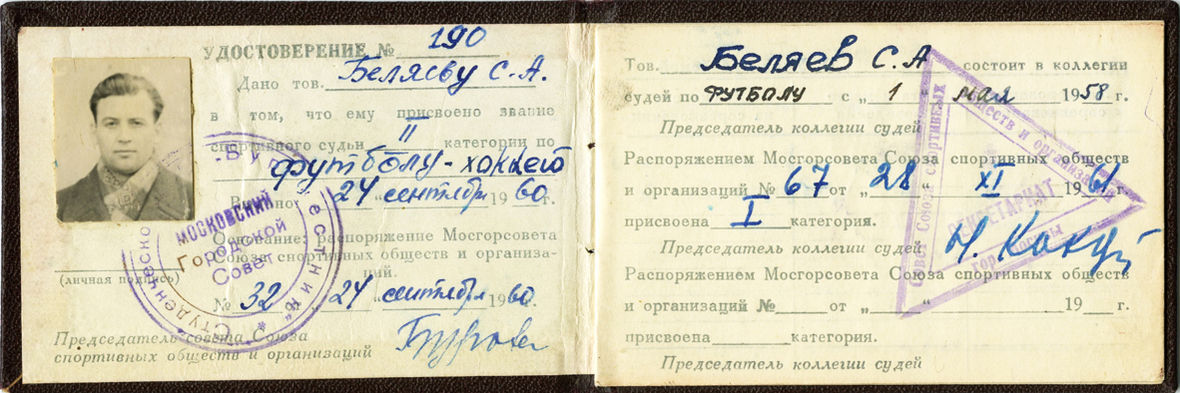 УДОСТОВЕРЕНИЕ № 190
Дано тов. Беляеву С.А.
в том, что ему присвоено звание
спортивного судьи II категории по
футболу-хоккею
Выдано: 24 сентября 1960 г.
Основание: распоряжение Мосгорсовета
Союза спортивных обществ и организа-
ций.
(личная подпись)
№ 32 24 сентября 1960 г.
Председатель совета Союза
спортивных обществ и организаций
МОСКОВСКИЙ
Городской
Совет
Тов. Беляев С.А состоит в коллегии
судей по ФУТБОЛУ с „1" мая 1958 г.
Председатель коллегии судей
Распоряжением Мосгорсовета Союза спортивных обществ
и организаций № 67 от „28 XI 1961 г.
присвоена I категория.
Председатель коллегии судей
Распоряжением Мосгорсовета Союза спортивных обществ
и организаций № от „ " 19 г.
присвоена категория.
Председатель коллегии судей
Совет Союза спортивных
обществ и организаций
города Москвы
СЕКРЕТАРИАТ